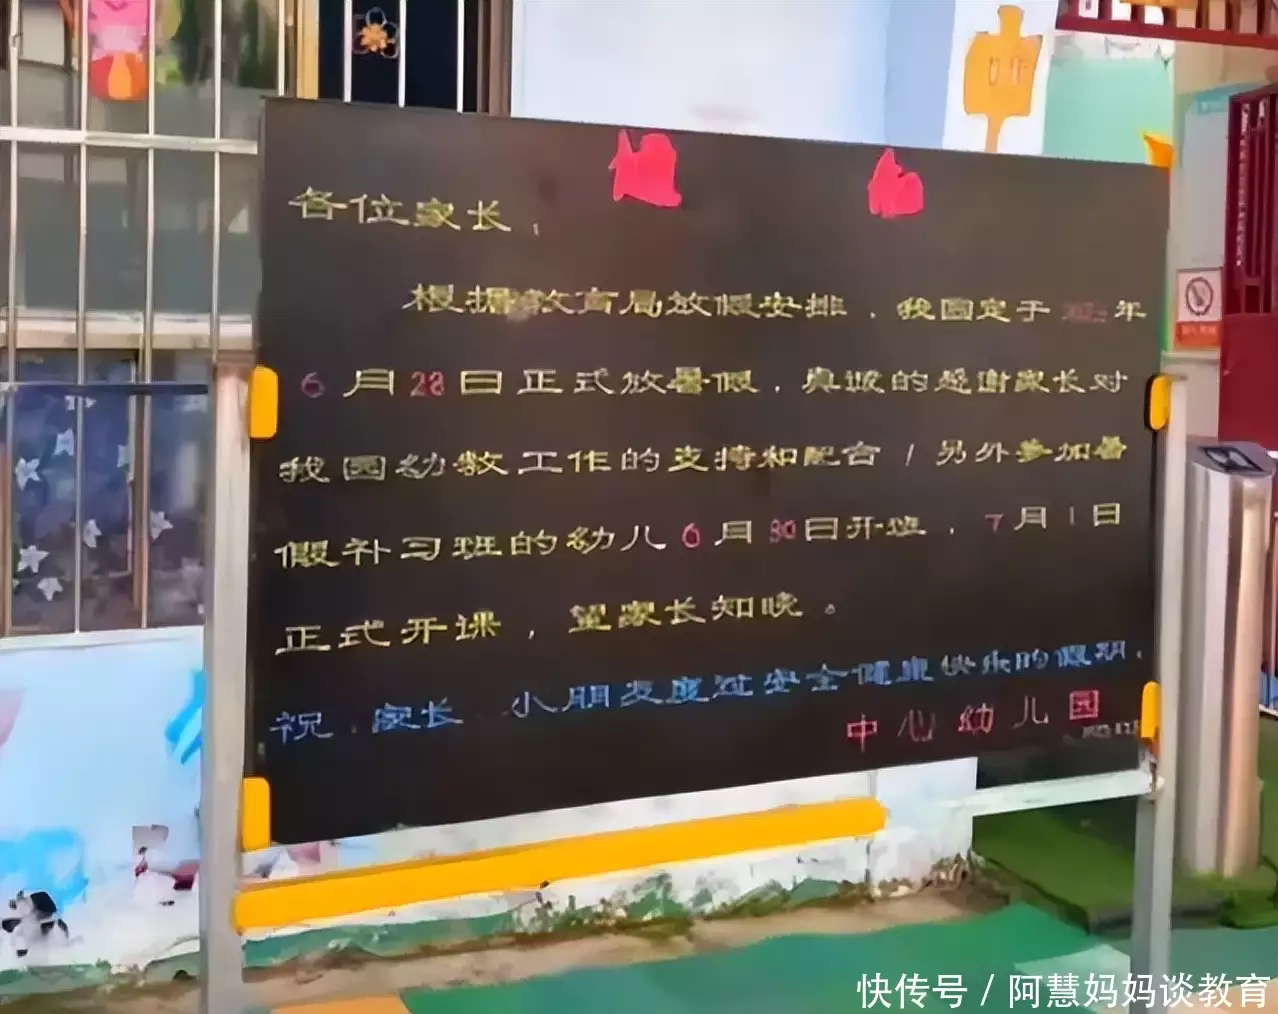 中
通 知
各位家长，
根据教育局放假安排，我园定于 年
6月28日正式放暑假，真诚的感谢家长对
我园幼教工作的支持和配合！另外参加暑
假补习班的幼儿6月30日开班，7月1日
正式开课，望家长知晓。
祝：家长 小朋友度过安全健康快乐的假期，
中心幼儿园
快传号 / 阿慧妈妈谈教育